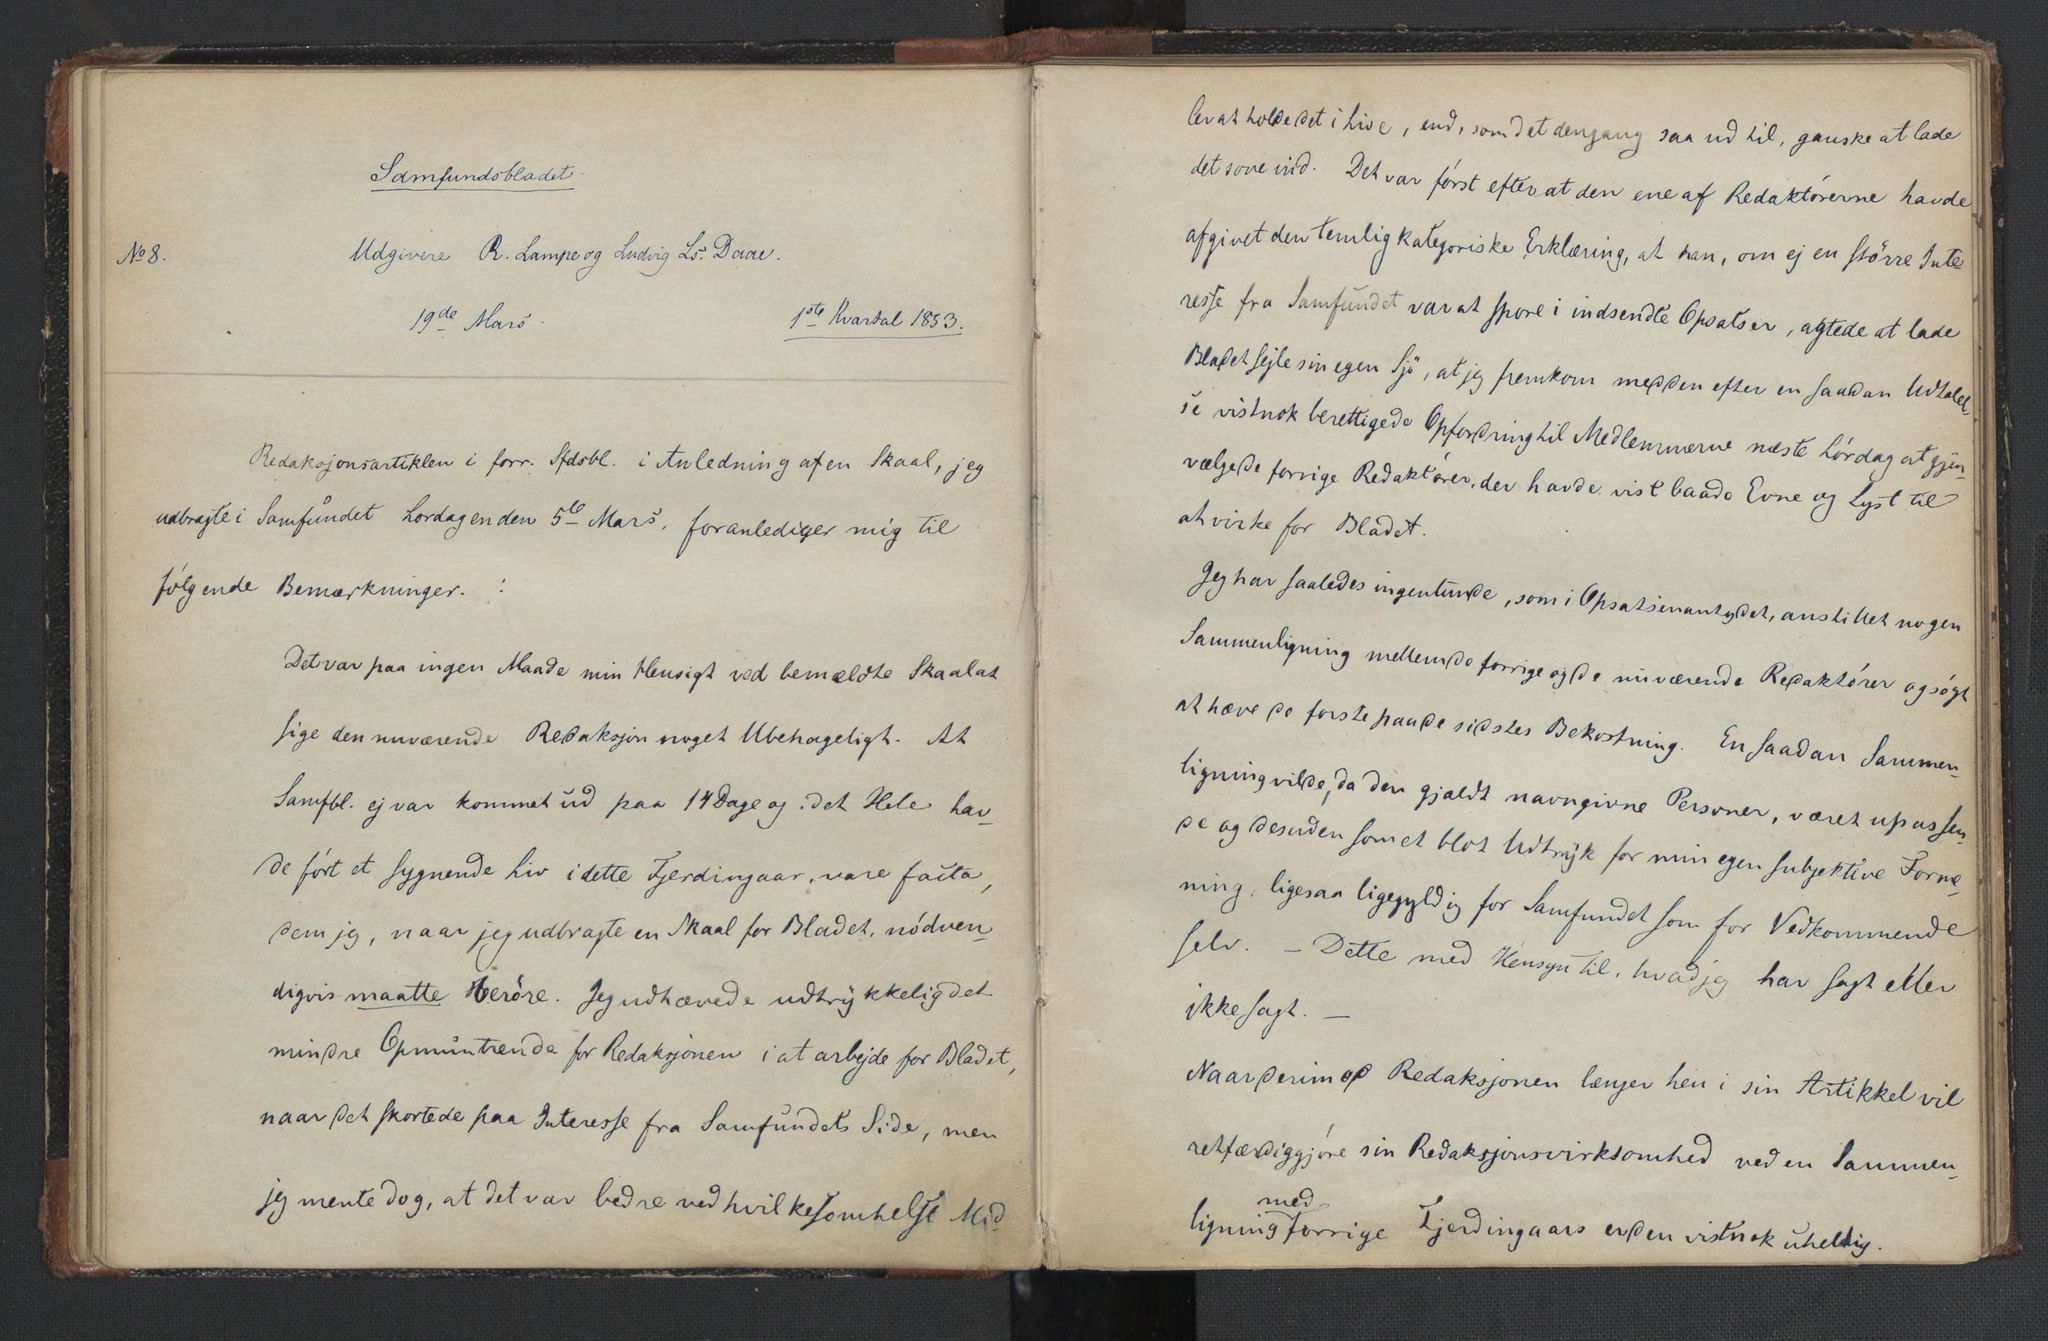 Samfundsbladet.
No 8.
Udgivere R. Lampe og Ludvig Ls. Daae.
19de Mars.
1ste Kvartal 1853.
Redaksjonsartiklen i forr. Sfdsbl. i Anledning af en Skaal, jeg
udbragte i Samfundet Lørdagen den 5te Mars, foranlediger mig til
følgende Bemærkninger. :
Det var paa ingen Maade min Hensigt ved bemældte Skaal at
sige den nuværende Redaksjon noget Ubehageligt. At
Samfbl. ej var kommet ud paa 14 Dage og i det Hele hav-
de ført et sygnende Liv i dette Fjerdingaar, vare facta,
dem jeg, naar jeg udbragte en Skaal for Bladet, nödven-
digvis maatte berøre. Jeg udhævede udtrykkelig det
mindre Opmuntrende for Redaksjonen i at arbejde for Bladet,
naar det skortede paa Interesse fra Samfundets Side, men
jeg mente dog, at det var bedre ved hvilkesomhelst Mid-
ler at holde det i Live, end, som det dengang saa ud til, ganske at lade
det sove ind. Det var først efter at den ene af Redaktörerne havde
afgivet den temlig kategoriske Erklæring, at han, om ej en större Inte-
resse fra Samfundet var at spore i indsendte Opsatser, agtede at lade
Bladet sejle sin egen Sjö, at jeg fremkom med den efter en saadan Udtalel-
se vistnok berettigede Opfordring til Medlemmerne næste Lördag at gjen-
vælge de forrige Redaktörer, der havde vist baade Evne og Lyst til
at virke for Bladet.
Jeg har saaledes ingenlunde, som i Opsatsen antydet, anstillet nogen
Sammenligning mellem de forrige og de nuværende Redaktörer og søgt
at hæve de første paa de sidstes Bekostning. En saadan Sammen-
ligning vilde, da den gjældt navngivne Personer, været upassen-
de og desuden som et blot Udtryk for min egen subjektive Forme-
ning, ligesaa ligegyldig for Samfundet som for Vedkommende
selv. – Dette med Hensyn til, hvad jeg har sagt eller
ikke sagt. —
Naar derimod Redaksjonen længer hen i sin Artikkel vil
retfærdiggjøre sin Redaksjonsvirksomhed ved en Sammen-
ligning med forrige Fjerdingaars er den vistnok uheldig.